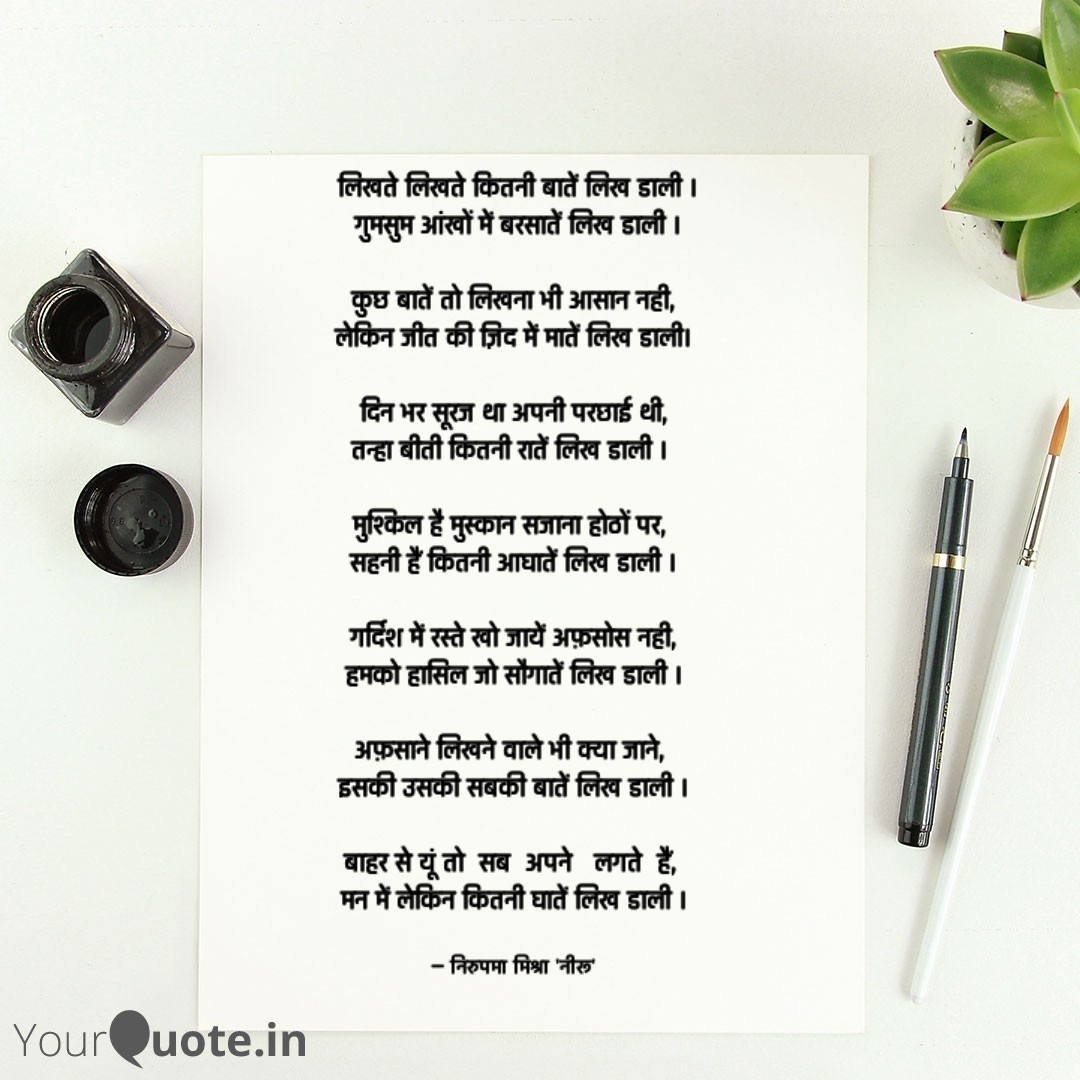 लिखते लिखते कितनी बातें लिख डाली ।
गुमसुम आंखों में बरसातें लिख डाली ।
कुछ बातें तो लिखना भी आसान नही,
लेकिन जीत की ज़िद में मातें लिख डाली।
दिन भर सूरज था अपनी परछाई थी,
तन्हा बीती कितनी रातें लिख डाली ।
मुश्किल है मुस्कान सजाना होठों पर,
सहनी हैं कितनी आघातें लिख डाली ।
गर्दिश में रस्ते खो जायें अफ़सोस नही,
हमको हासिल जो सौगातें लिख डाली ।
अफ़साने लिखने वाले भी क्या जाने,
इसकी उसकी सबकी बातें लिख डाली ।
बाहर से यूं तो सब अपने लगते हैं,
मन में लेकिन कितनी घातें लिख डाली ।
– निरुपमा मिश्रा 'नीरू'
YourQuote.in